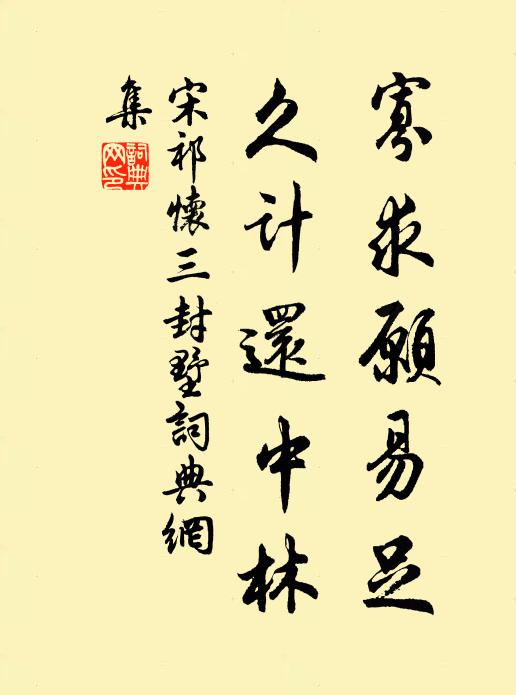 寡求願易足
久計還中林
宋祁懷三封墅詞典網
集
詞典網印